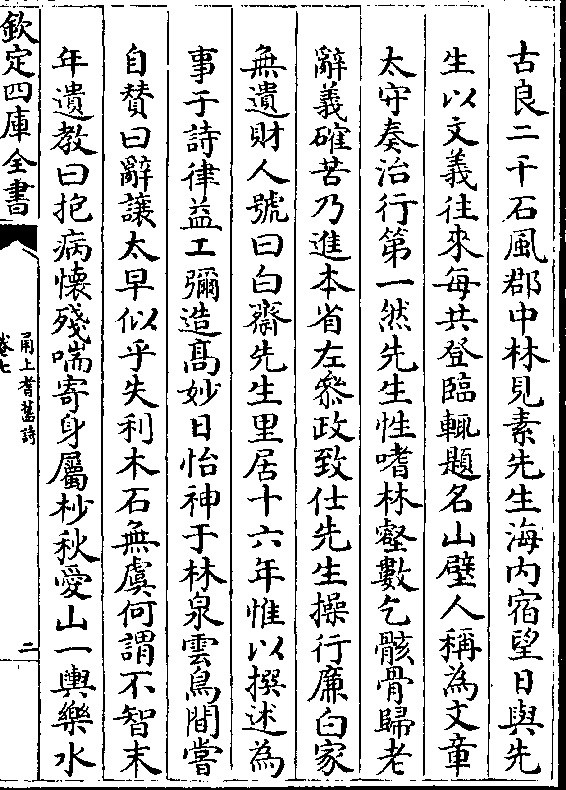 古良二千石風郡中林見素先生海内宿望日與先
生以文義往來每共登臨輒題名山壁人稱為文章
太守奏治行第一然先生性嗜林壑數乞骸骨歸老
辭義確苦乃進本省左叅政致仕先生操行廉白家
無遺財人號曰白齋先生里居十六年惟以撰述為
事于詩律益工彌造髙妙日怡神于林泉雲鳥間嘗
自賛曰辭讓太早似乎失利木石無虞何謂不智末
年遺教曰抱病懐殘喘寄身屬杪秋愛山一輿樂水
欽定四庫全書
甬上耆舊詩
卷七
二